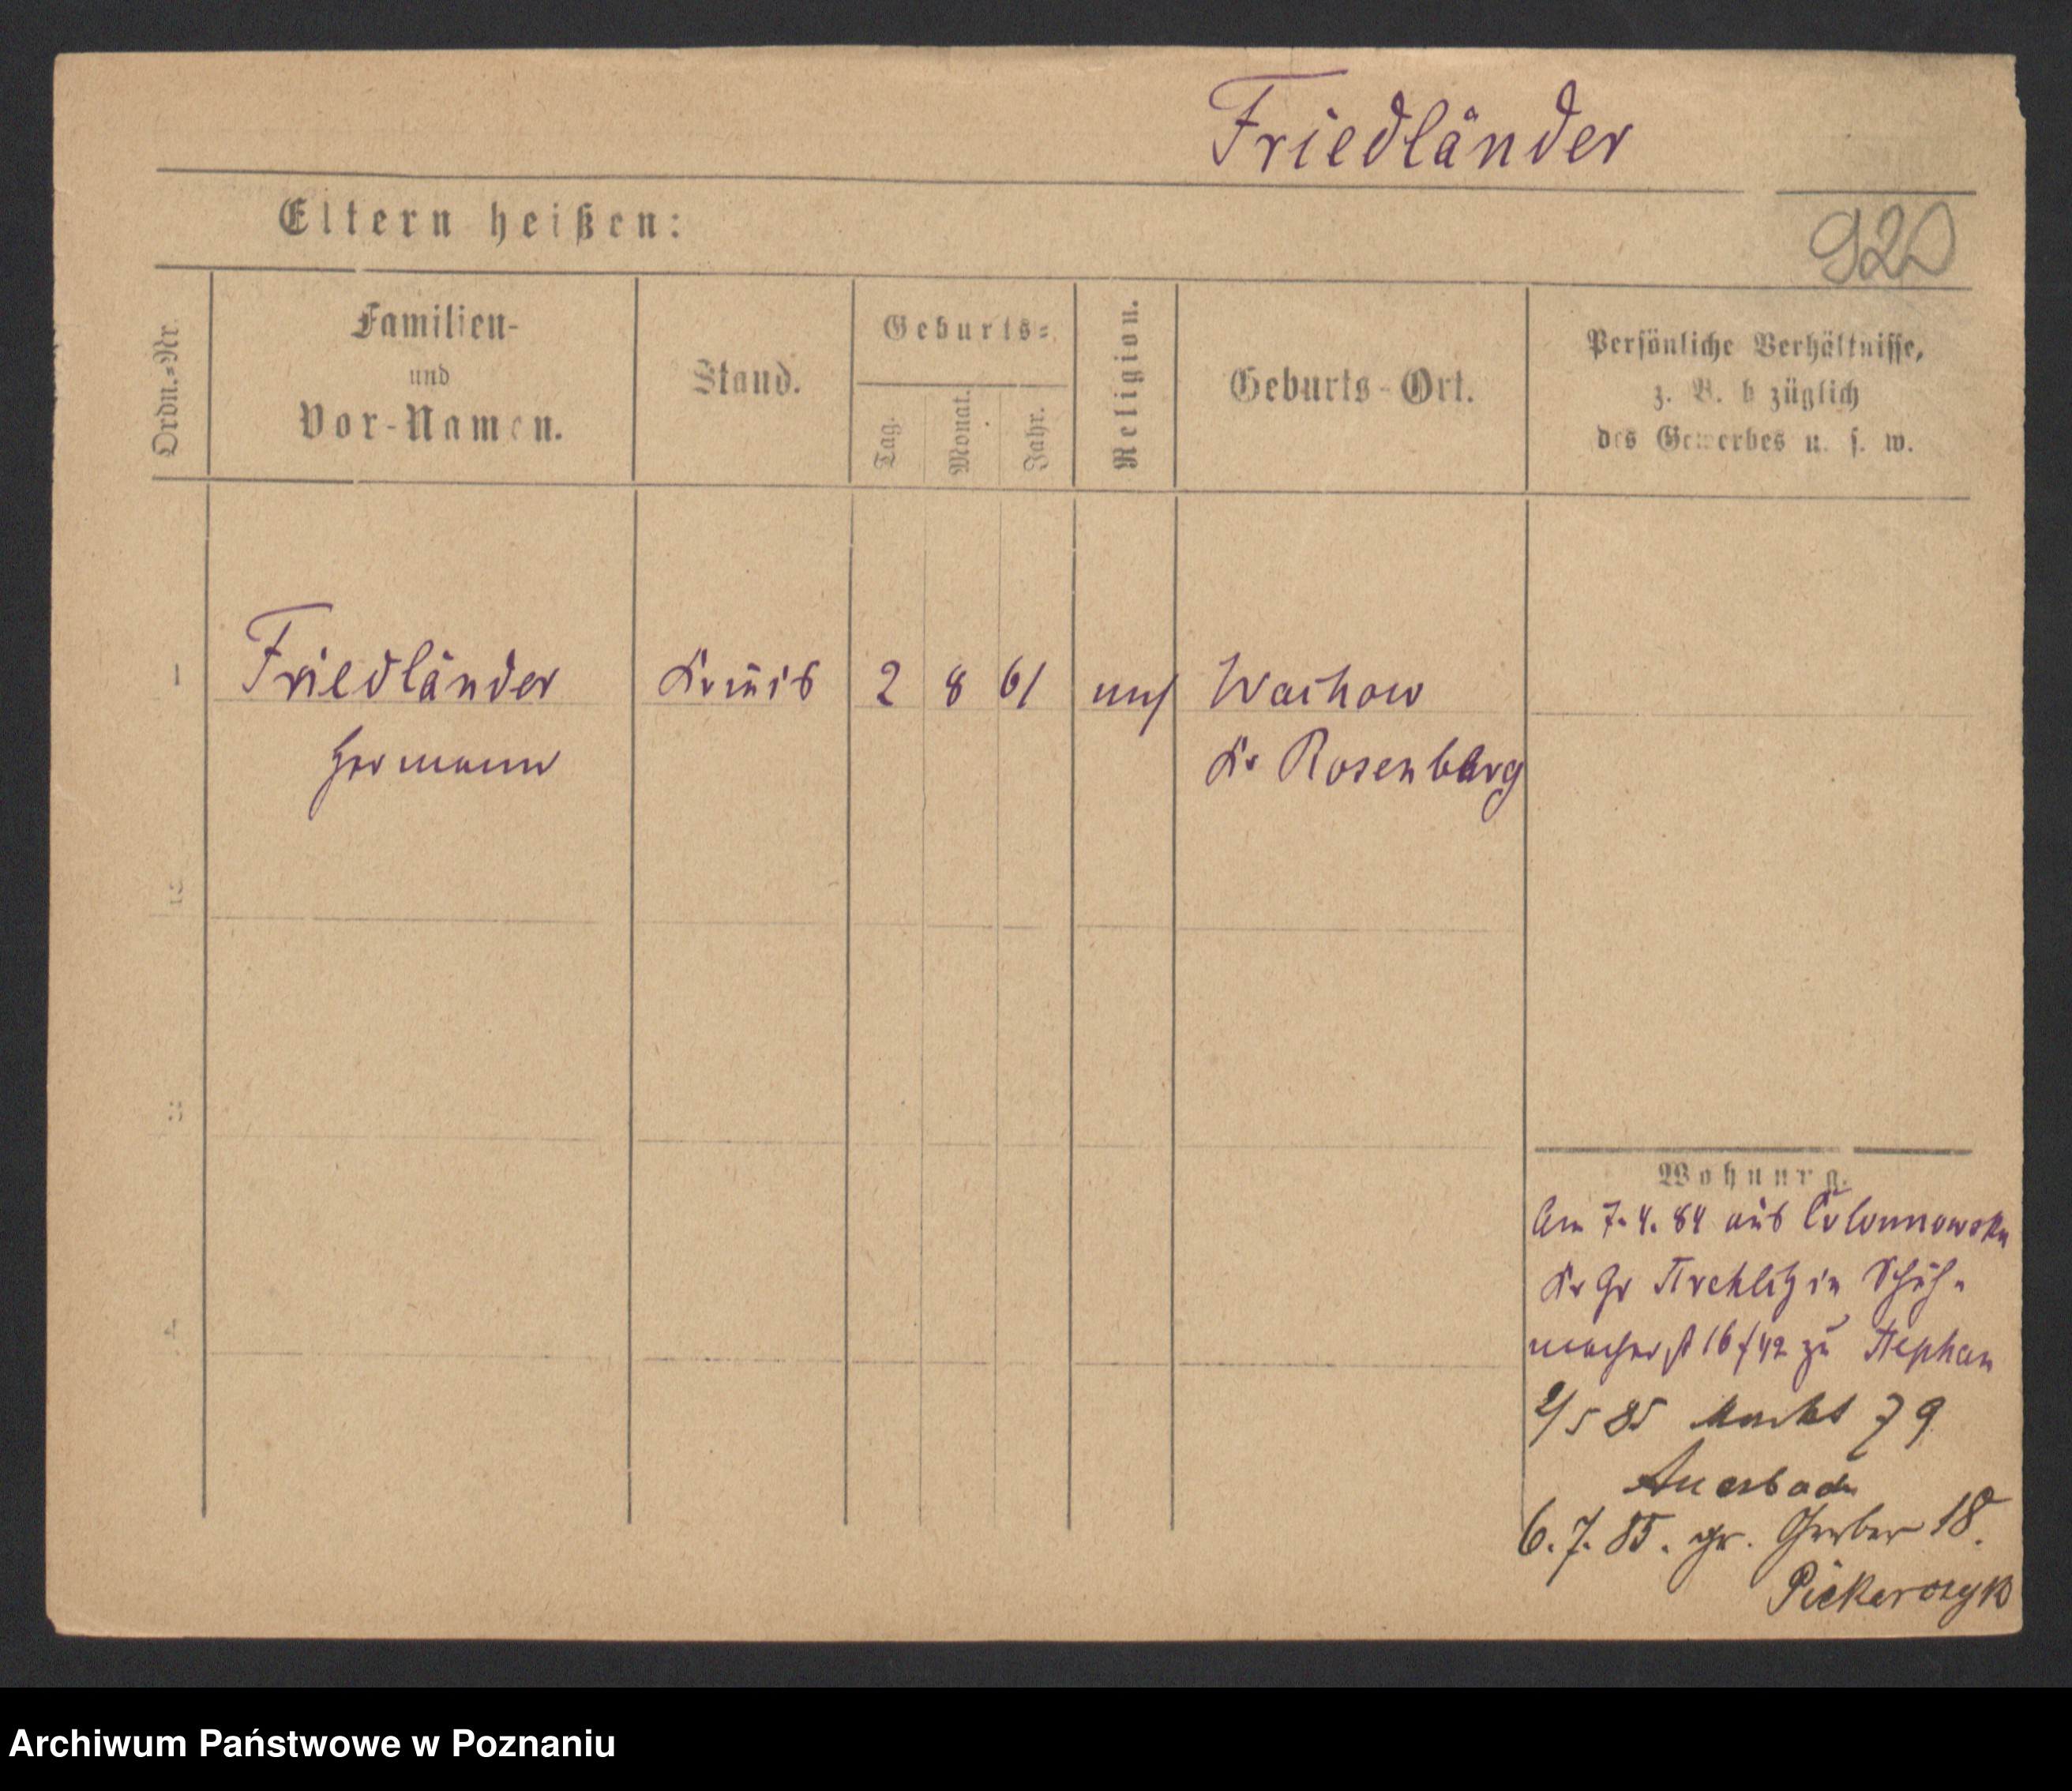 Friedländer
920
Eltern heißen:
Ordn.-Nr.
Familien-
und
Vor-Namen.
Stand.
Geburts-
Tag.
Monat.
Jahr.
Religion.
Geburts-Ort.
Persönliche Verhältnisse,
z. B. bezüglich
des Gewerbes u. s. w.
1 Friedländer 2 8 61 Wachow
Hermann Kr Rosenberg
2
3
4
Wohnung.
Am 7.4.84 aus Colonnowska
Kr Gr Strehlitz in Schuh-
macherst 16 zu Stephan
2/5 85 Markt 79
Auerbach
6.7.85. gr. Gerber 18.
Piekarczyk
Archiwum Państwowe w Poznaniu